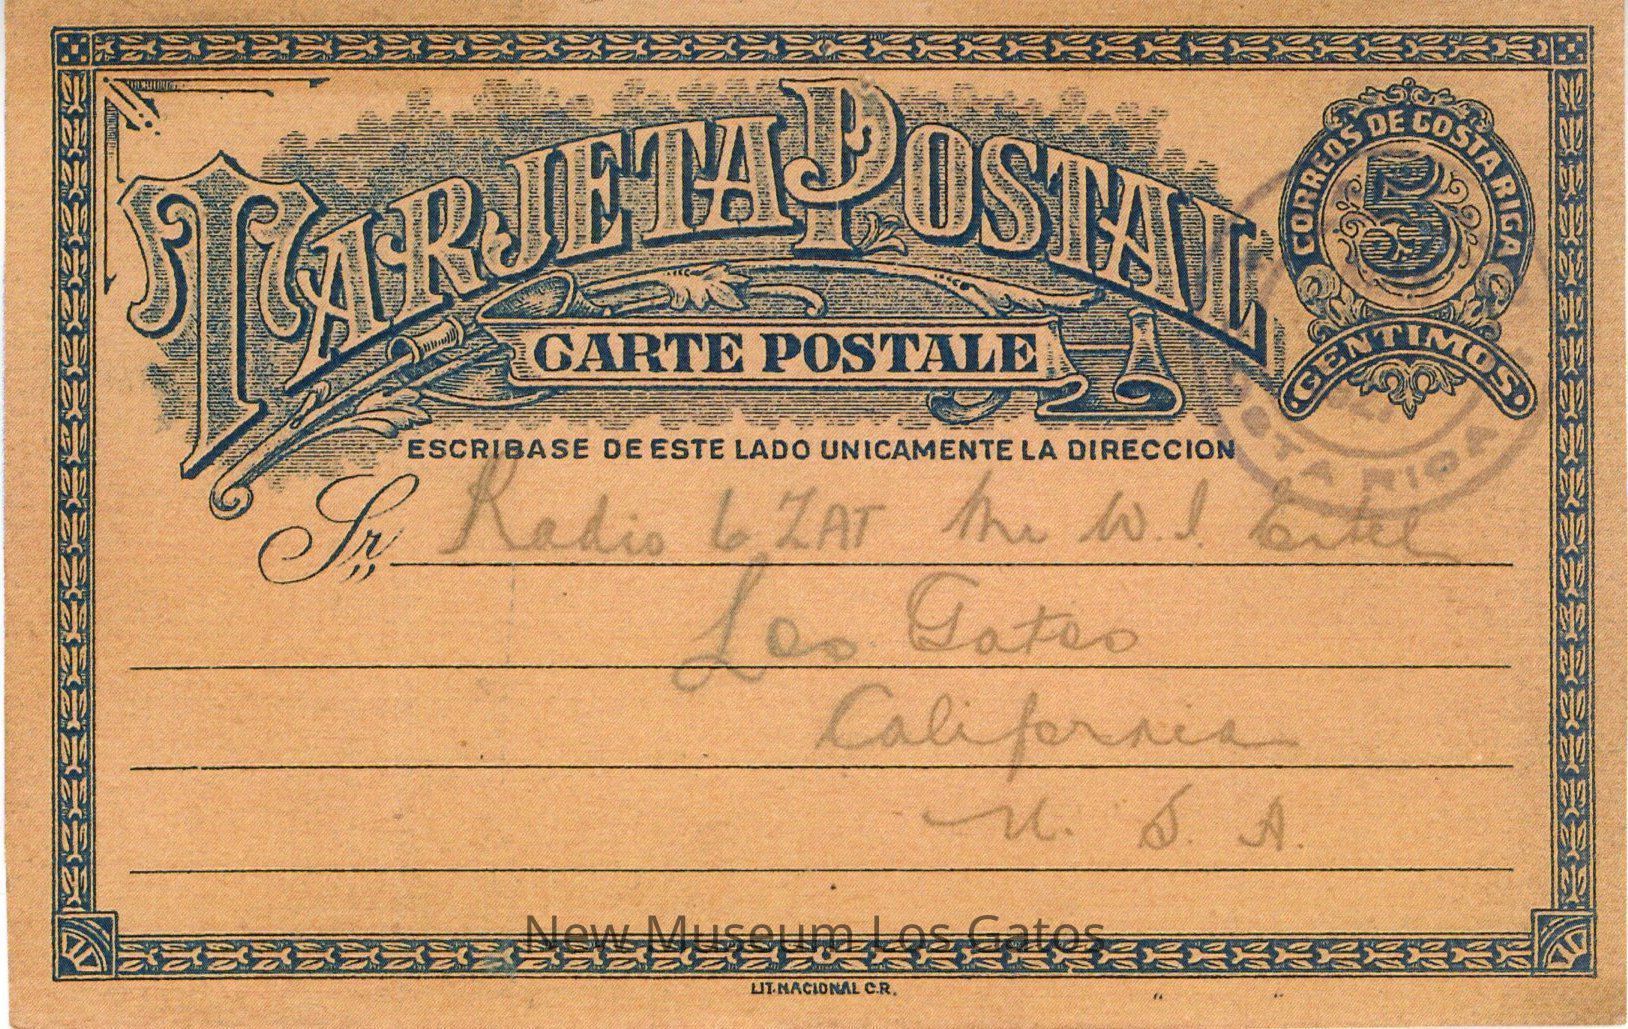 TARJETA POSTAL
CORREOS DE COSTA RICA
5
CENTIMOS
CARTE POSTALE
ESCRIBASE DE ESTE LADO UNICAMENTE LA DIRECCION
Sr. Radio 6ZAT Mr W. J.
Los Gatos
California
U. S. A.
COSTA RICA
New Museum Los Gatos
LIT. NACIONAL C.R.